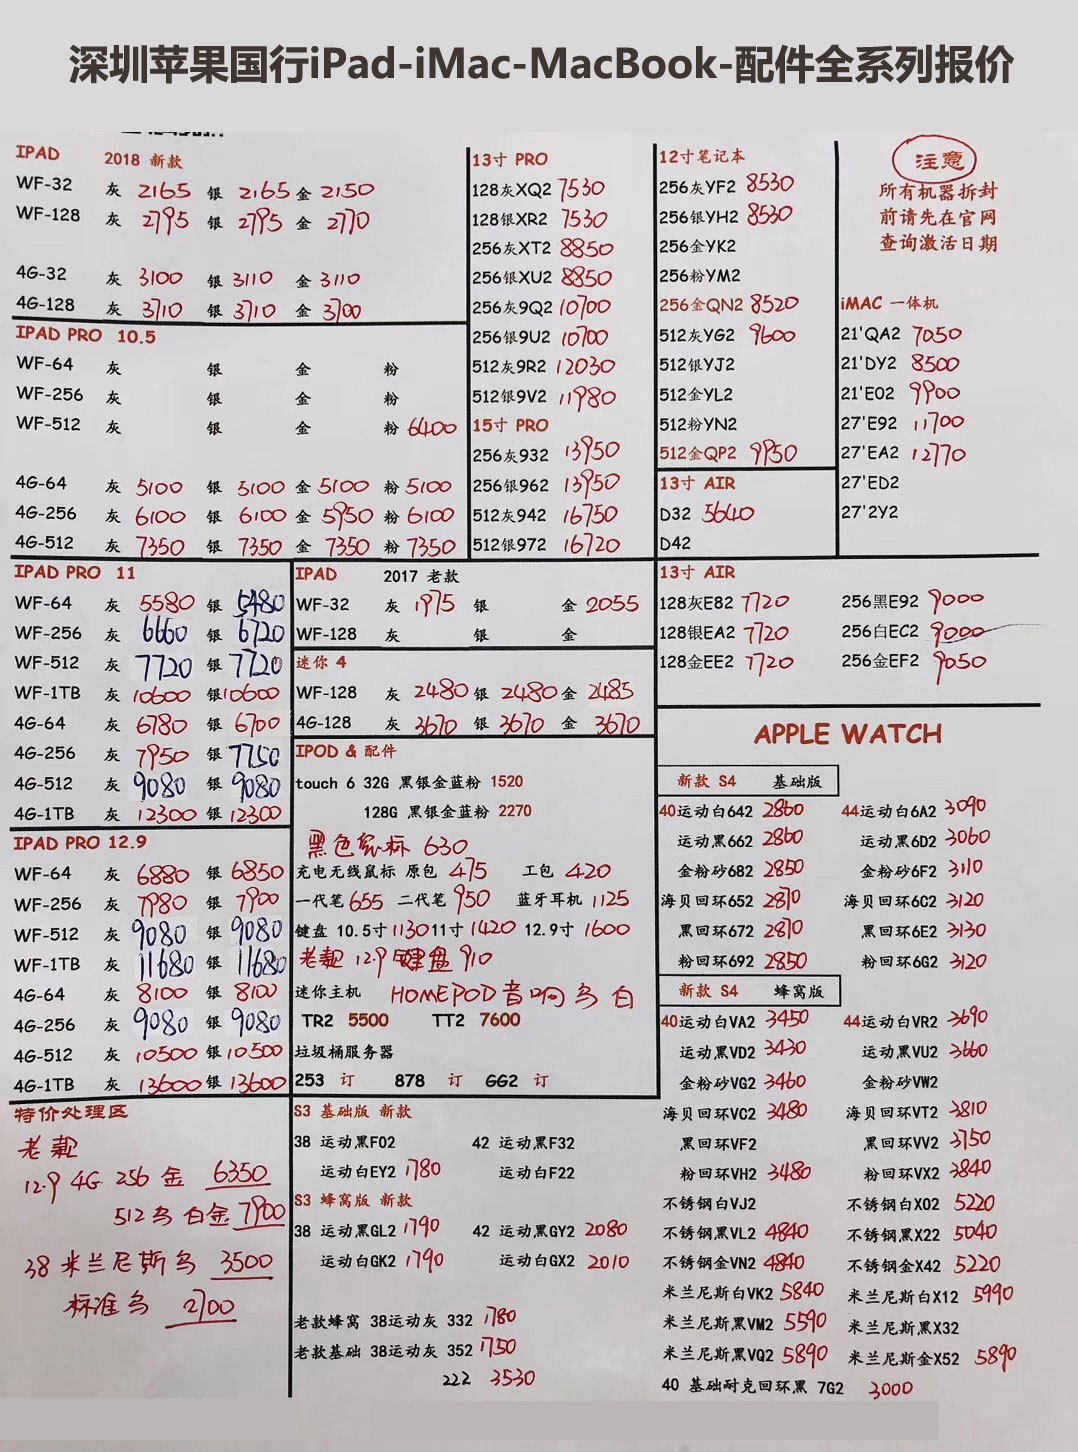 深圳苹果国行iPad-iMac-MacBook-配件全系列报价
IPAD 2018 新款
WF-32 灰 2165 银 2165 金 2150
WF-128 灰 2795 银 2795 金 2770
4G-32 灰 3100 银 3110 金 3110
4G-128 灰 3710 银 3710 金 3700
IPAD PRO 10.5
WF-64 灰 银 金 粉
WF-256 灰 银 金 粉
WF-512 灰 银 金 粉 6400
4G-64 灰 5100 银 5100 金 5100 粉 5100
4G-256 灰 6100 银 6100 金 5950 粉 6100
4G-512 灰 7350 银 7350 金 7350 粉 7350
13寸 PRO
128灰XQ2 7530
128银XR2 7530
256灰XT2 8850
256银XU2 8850
256灰9Q2 10700
256银9U2 10700
512灰9R2 12030
512银9V2 11980
15寸 PRO
256灰932 13950
256银962 13950
512灰942 16750
512银972 16720
12寸笔记本
256灰YF2 8530
256银YH2 8530
256金YK2
256粉YM2
256金QN2 8520
512灰YG2 9600
512银YJ2
512金YL2
512粉YN2
512金QP2 9950
13寸 AIR
D32 5640
D42
注意
所有机器拆封
前请先在官网
查询激活日期
iMAC 一体机
21'QA2 7050
21'DY2 8500
21'E02 9900
27'E92 11700
27'EA2 12770
27'ED2
27'2Y2
IPAD PRO 11
WF-64 灰 5580 银 5480
WF-256 灰 6660 银 6720
WF-512 灰 7720 银 7720
WF-1TB 灰 10600 银 10600
4G-64 灰 6780 银 6700
4G-256 灰 7950 银 7750
4G-512 灰 9080 银 9080
4G-1TB 灰 12300 银 12300
IPAD PRO 12.9
WF-64 灰 6880 银 6850
WF-256 灰 7980 银 7900
WF-512 灰 9080 银 9080
WF-1TB 灰 11680 银 11680
4G-64 灰 8100 银 8100
4G-256 灰 9080 银 9080
4G-512 灰 10500 银 10500
4G-1TB 灰 13600 银 13600
IPAD 2017 老款
WF-32 灰 1975 银 金 2055
WF-128 灰 银 金
迷你 4
WF-128 灰 2480 银 2480 金 2485
4G-128 灰 3670 银 3670 金 3670
IPOD & 配件
touch 6 32G 黑银金蓝粉 1520
128G 黑银金蓝粉 2270
黑色鼠标 630
充电无线鼠标 原包 475 工包 420
一代笔 655 二代笔 950 蓝牙耳机 1125
键盘 10.5寸 1130 11寸 1420 12.9寸 1600
老款 12.9 键盘 910
迷你主机 HOMEPOD 音响 乌 白
TR2 5500 TT2 7600
垃圾桶服务器
253 订 878 订 GG2 订
13寸 AIR
128灰E82 7720 256黑E92 9000
128银EA2 7720 256白EC2 9000
128金EE2 7720 256金EF2 9050
APPLE WATCH
新款 S4 基础版
40运动白642 2860 44运动白6A2 3090
运动黑662 2860 运动黑6D2 3060
金粉砂682 2850 金粉砂6F2 3110
海贝回环652 2870 海贝回环6C2 3120
黑回环672 2870 黑回环6E2 3130
粉回环692 2850 粉回环6G2 3120
新款 S4 蜂窝版
40运动白VA2 3450 44运动白VR2 3690
运动黑VD2 3430 运动黑VU2 3660
金粉砂VG2 3460 金粉砂VW2
海贝回环VC2 3480 海贝回环VT2 3810
黑回环VF2 黑回环VV2 3750
粉回环VH2 3480 粉回环VX2 3840
不锈钢白VJ2 不锈钢白X02 5220
不锈钢黑VL2 4840 不锈钢黑X22 5040
不锈钢金VN2 4840 不锈钢金X42 5220
米兰尼斯白VK2 5840 米兰尼斯白X12 5990
米兰尼斯黑VM2 5590 米兰尼斯黑X32
米兰尼斯黑VQ2 5890 米兰尼斯金X52 5890
40 基础耐克回环黑 7G2 3000
特价处理区
老款
12.9 4G 256 金 6350
512 乌 白金 7900
38 米兰尼斯乌 3500
标准乌 2700
S3 基础版 新款
38 运动黑F02 42 运动黑F32
运动白EY2 1780 运动白F22
S3 蜂窝版 新款
38 运动黑GL2 1790 42 运动黑GY2 2080
运动白GK2 1790 运动白GX2 2010
老款蜂窝 38运动灰 332 1780
老款基础 38运动灰 352 1750
222 3530